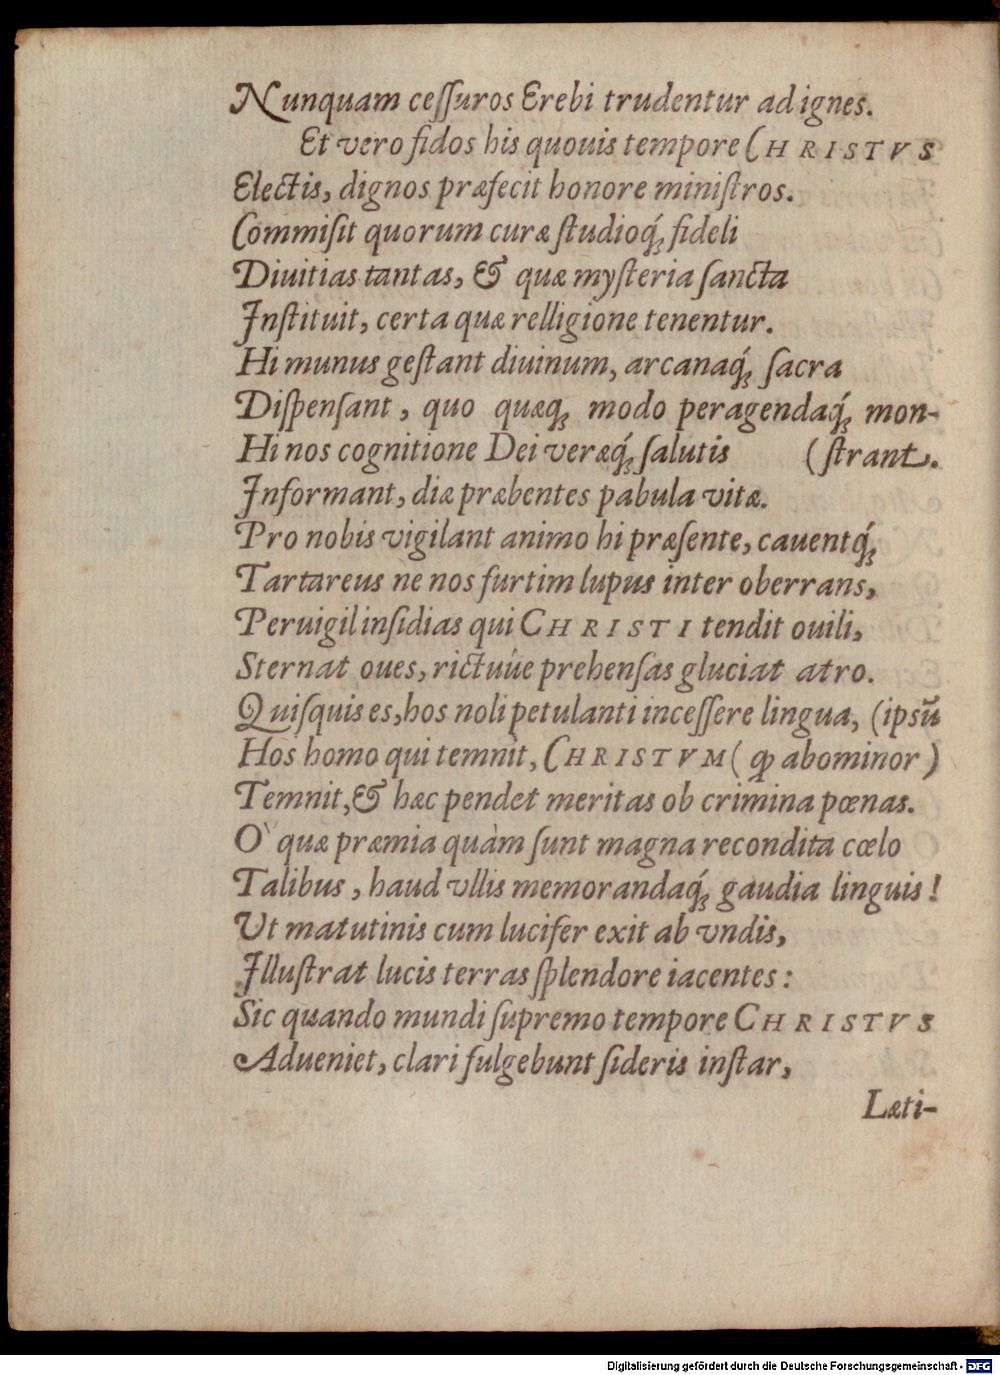 Nunquam ceſſuros Erebi trudentur ad ignes.
Et vero fidos his quouis tempore CHRISTVS
Electis, dignos præfecit honore miniſtros.
Commiſit quorum curæ ſtudioq́; fideli
Diuitias tantas, & quæ myſteria ſancta
Inſtituit, certa quæ relligione tenentur.
Hi munus geſtant diuinum, arcanaq́; ſacra
Diſpenſant, quo quæq; modo peragendaq́; mon-
Hi nos cognitione Dei veræq́; ſalutis (ſtrant.
Informant, diæ præbentes pabula vitæ.
Pro nobis vigilant animo hi præſente, cauentq́;
Tartareus ne nos furtim lupus inter oberrans,
Peruigil inſidias qui CHRISTI tendit ouili,
Sternat oues, rictuúe prehenſas gluciat atro.
Quiſquis es, hos noli petulanti inceſſere lingua, (ipsū
Hos homo qui temnit, CHRISTVM (ꝙ abominor)
Temnit, & hæc pendet meritas ob crimina pœnas.
O` quæ præmia quàm ſunt magna recondita cœlo
Talibus, haud vllis memorandaq́; gaudia linguis!
Ut matutinis cum lucifer exit ab vndis,
Illuſtrat lucis terras ſplendore iacentes:
Sic quando mundi ſupremo tempore CHRISTVS
Adueniet, clari fulgebunt ſideris inſtar,
Læti-
Digitalisierung gefördert durch die Deutsche Forschungsgemeinschaft - DFG